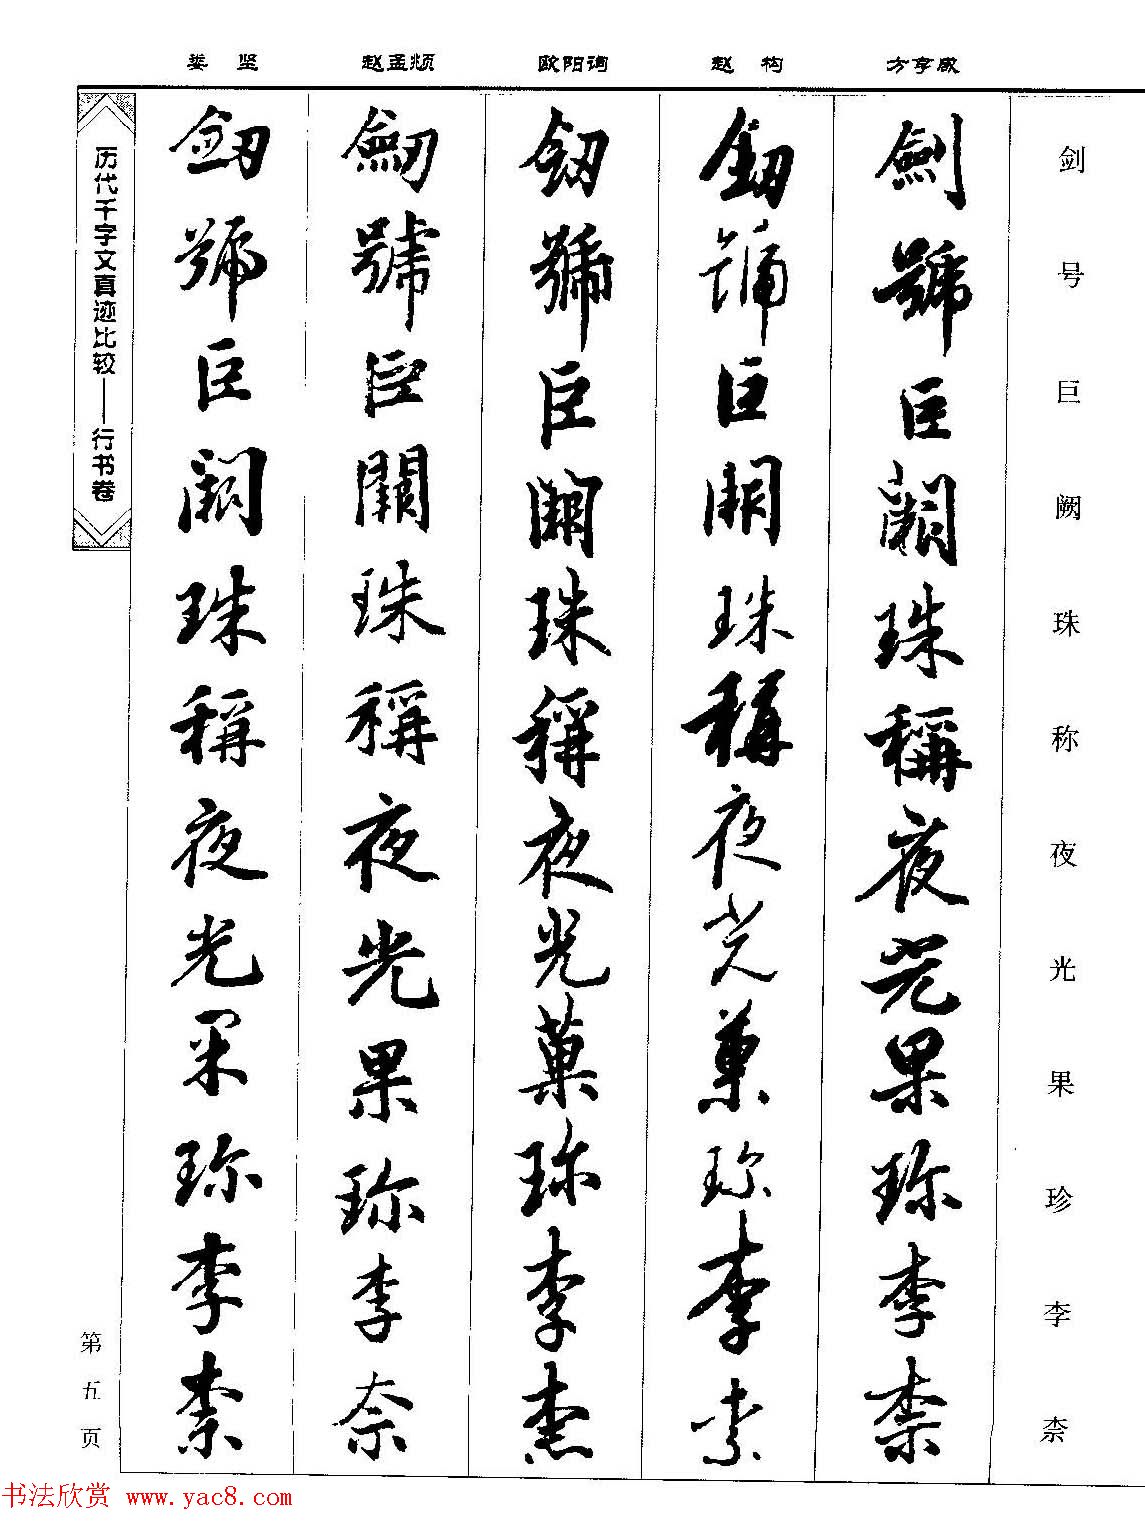 方亨咸
赵构
欧阳询
赵孟頫
娄坚
剑号巨阙珠称夜光果珍李柰
劍號巨闕珠稱夜光果珍李柰
釼號巨闕珠稱夜光菓珍李柰
釼號巨闕珠稱夜光菓珍李柰
劒號巨闕珠稱夜光果珍李奈
劒號巨闕珠稱夜光果珍李柰
历代千字文真迹比较——行书卷
第五页
书法欣赏 www.yac8.com